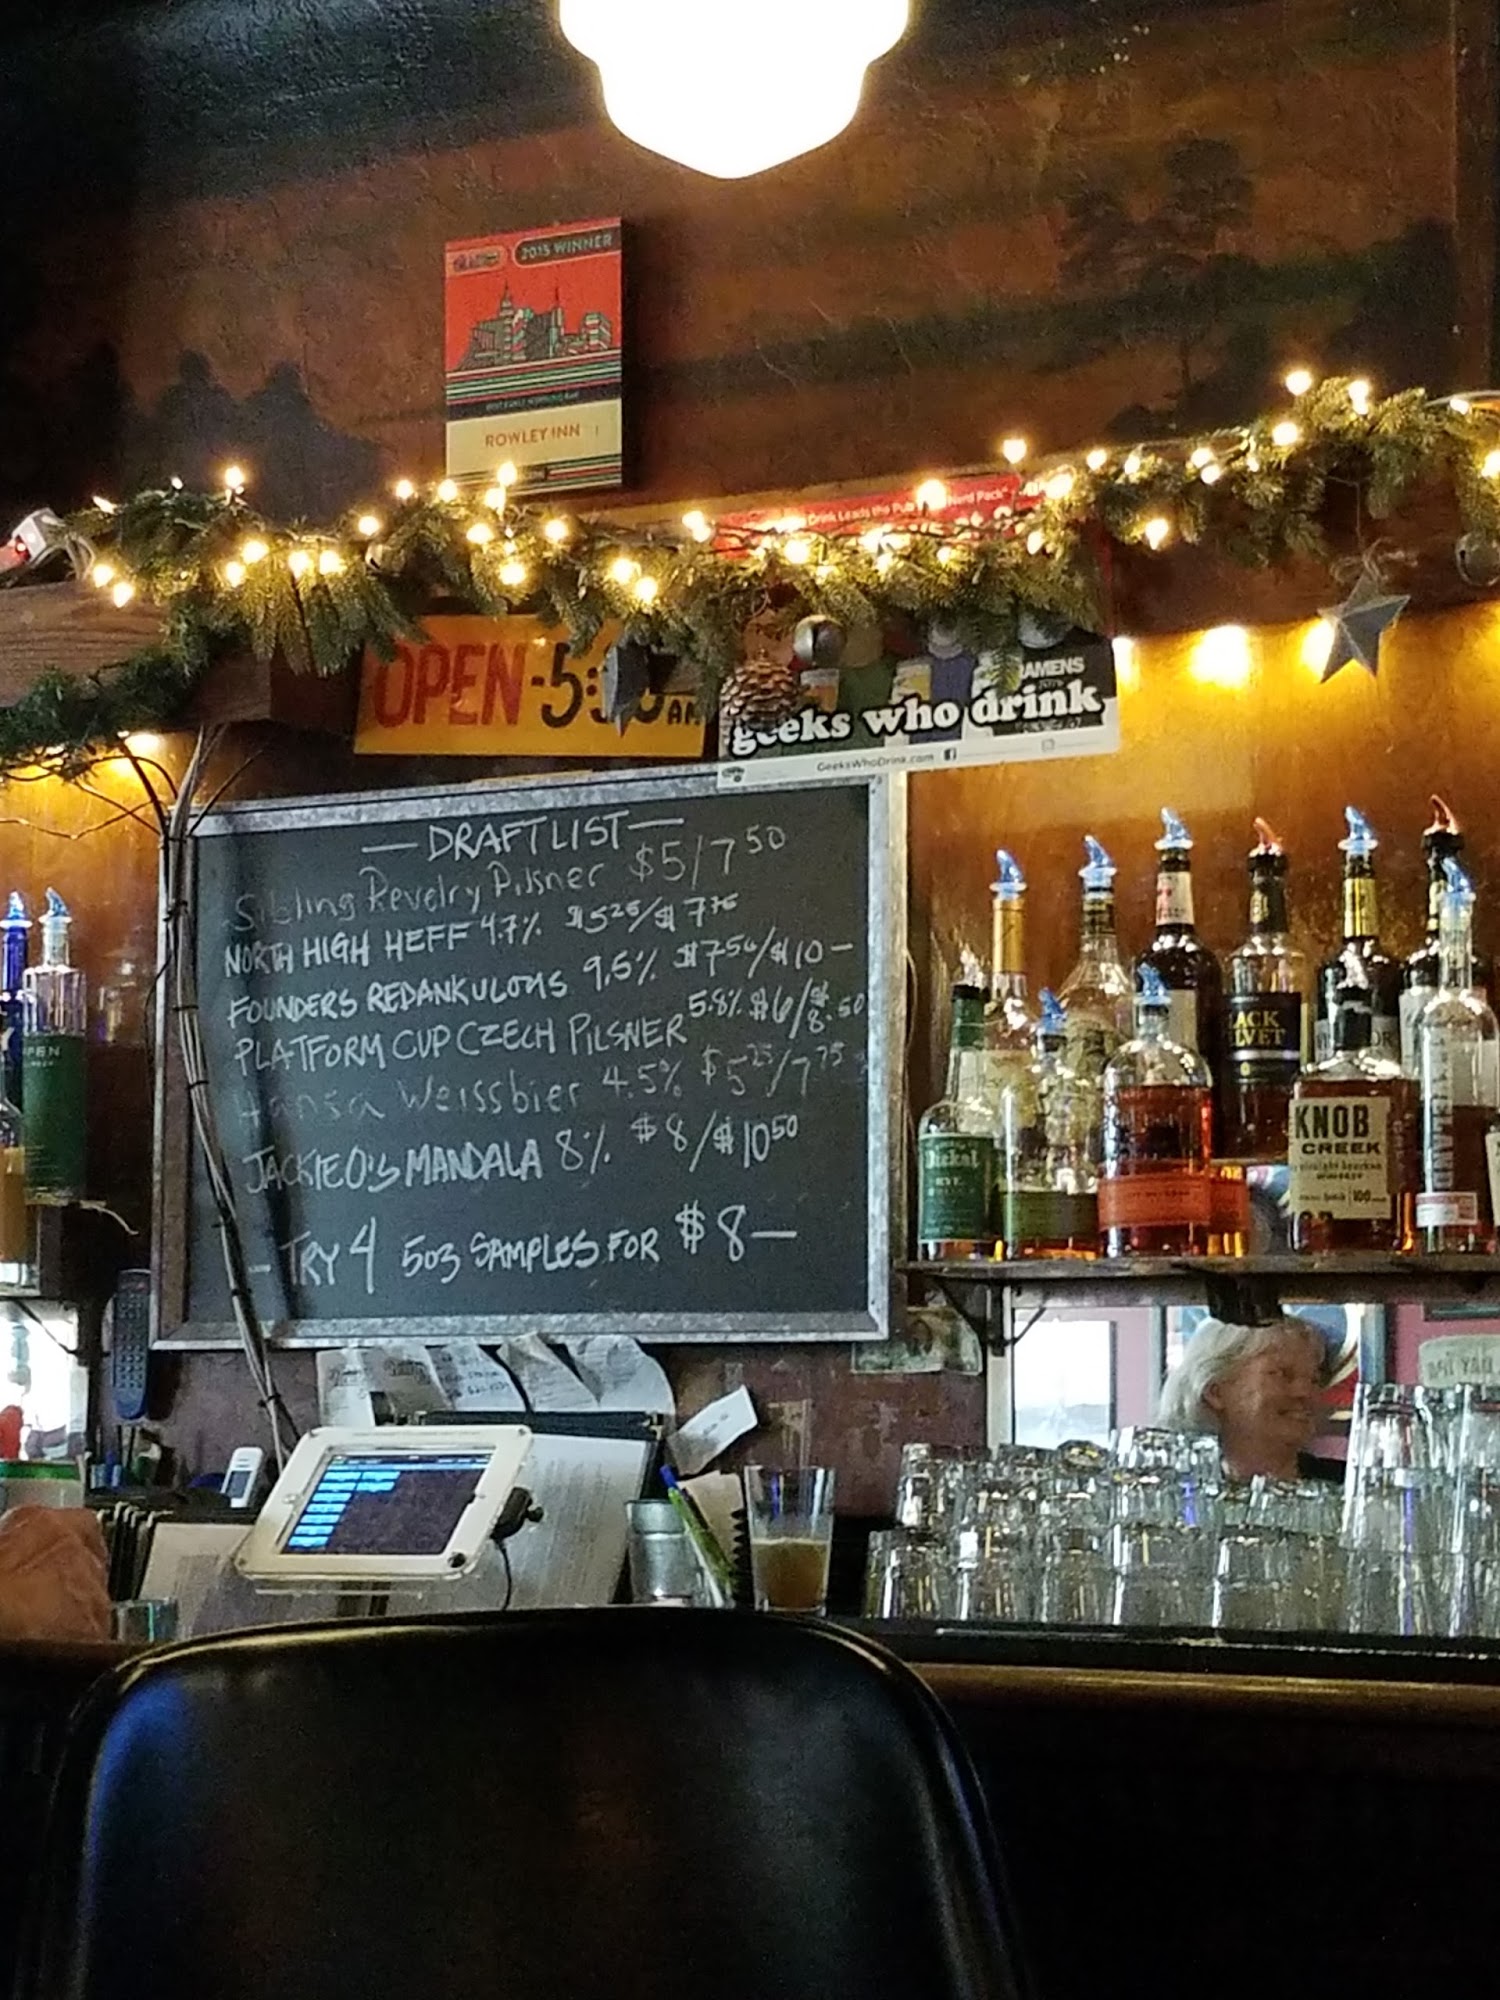 2015 WINNER
ROWLEY INN
Drink Leads the Pu
Nerd Pack"
OPEN -5:
AM
geeks who drink
GeeksWhoDrink.com
— DRAFT LIST —
Sibling Revelry Pilsner $5/7 50
NORTH HIGH HEFF 4.7% $5 25/$7 75
FOUNDERS REDANKULOUS 9.5% $7 50/$10 —
PLATFORM CUP CZECH PILSNER 5.8% $6/$8.50
Hansa Weissbier 4.5% $5 25/7 75
JACKIE O's MANDALA 8% $8/$10 50
— TRY 4 5OZ SAMPLES FOR $8 —
LACK
ELVET
Dickel
RYE
KNOB
CREEK
straight bourbon
WHISKEY
100